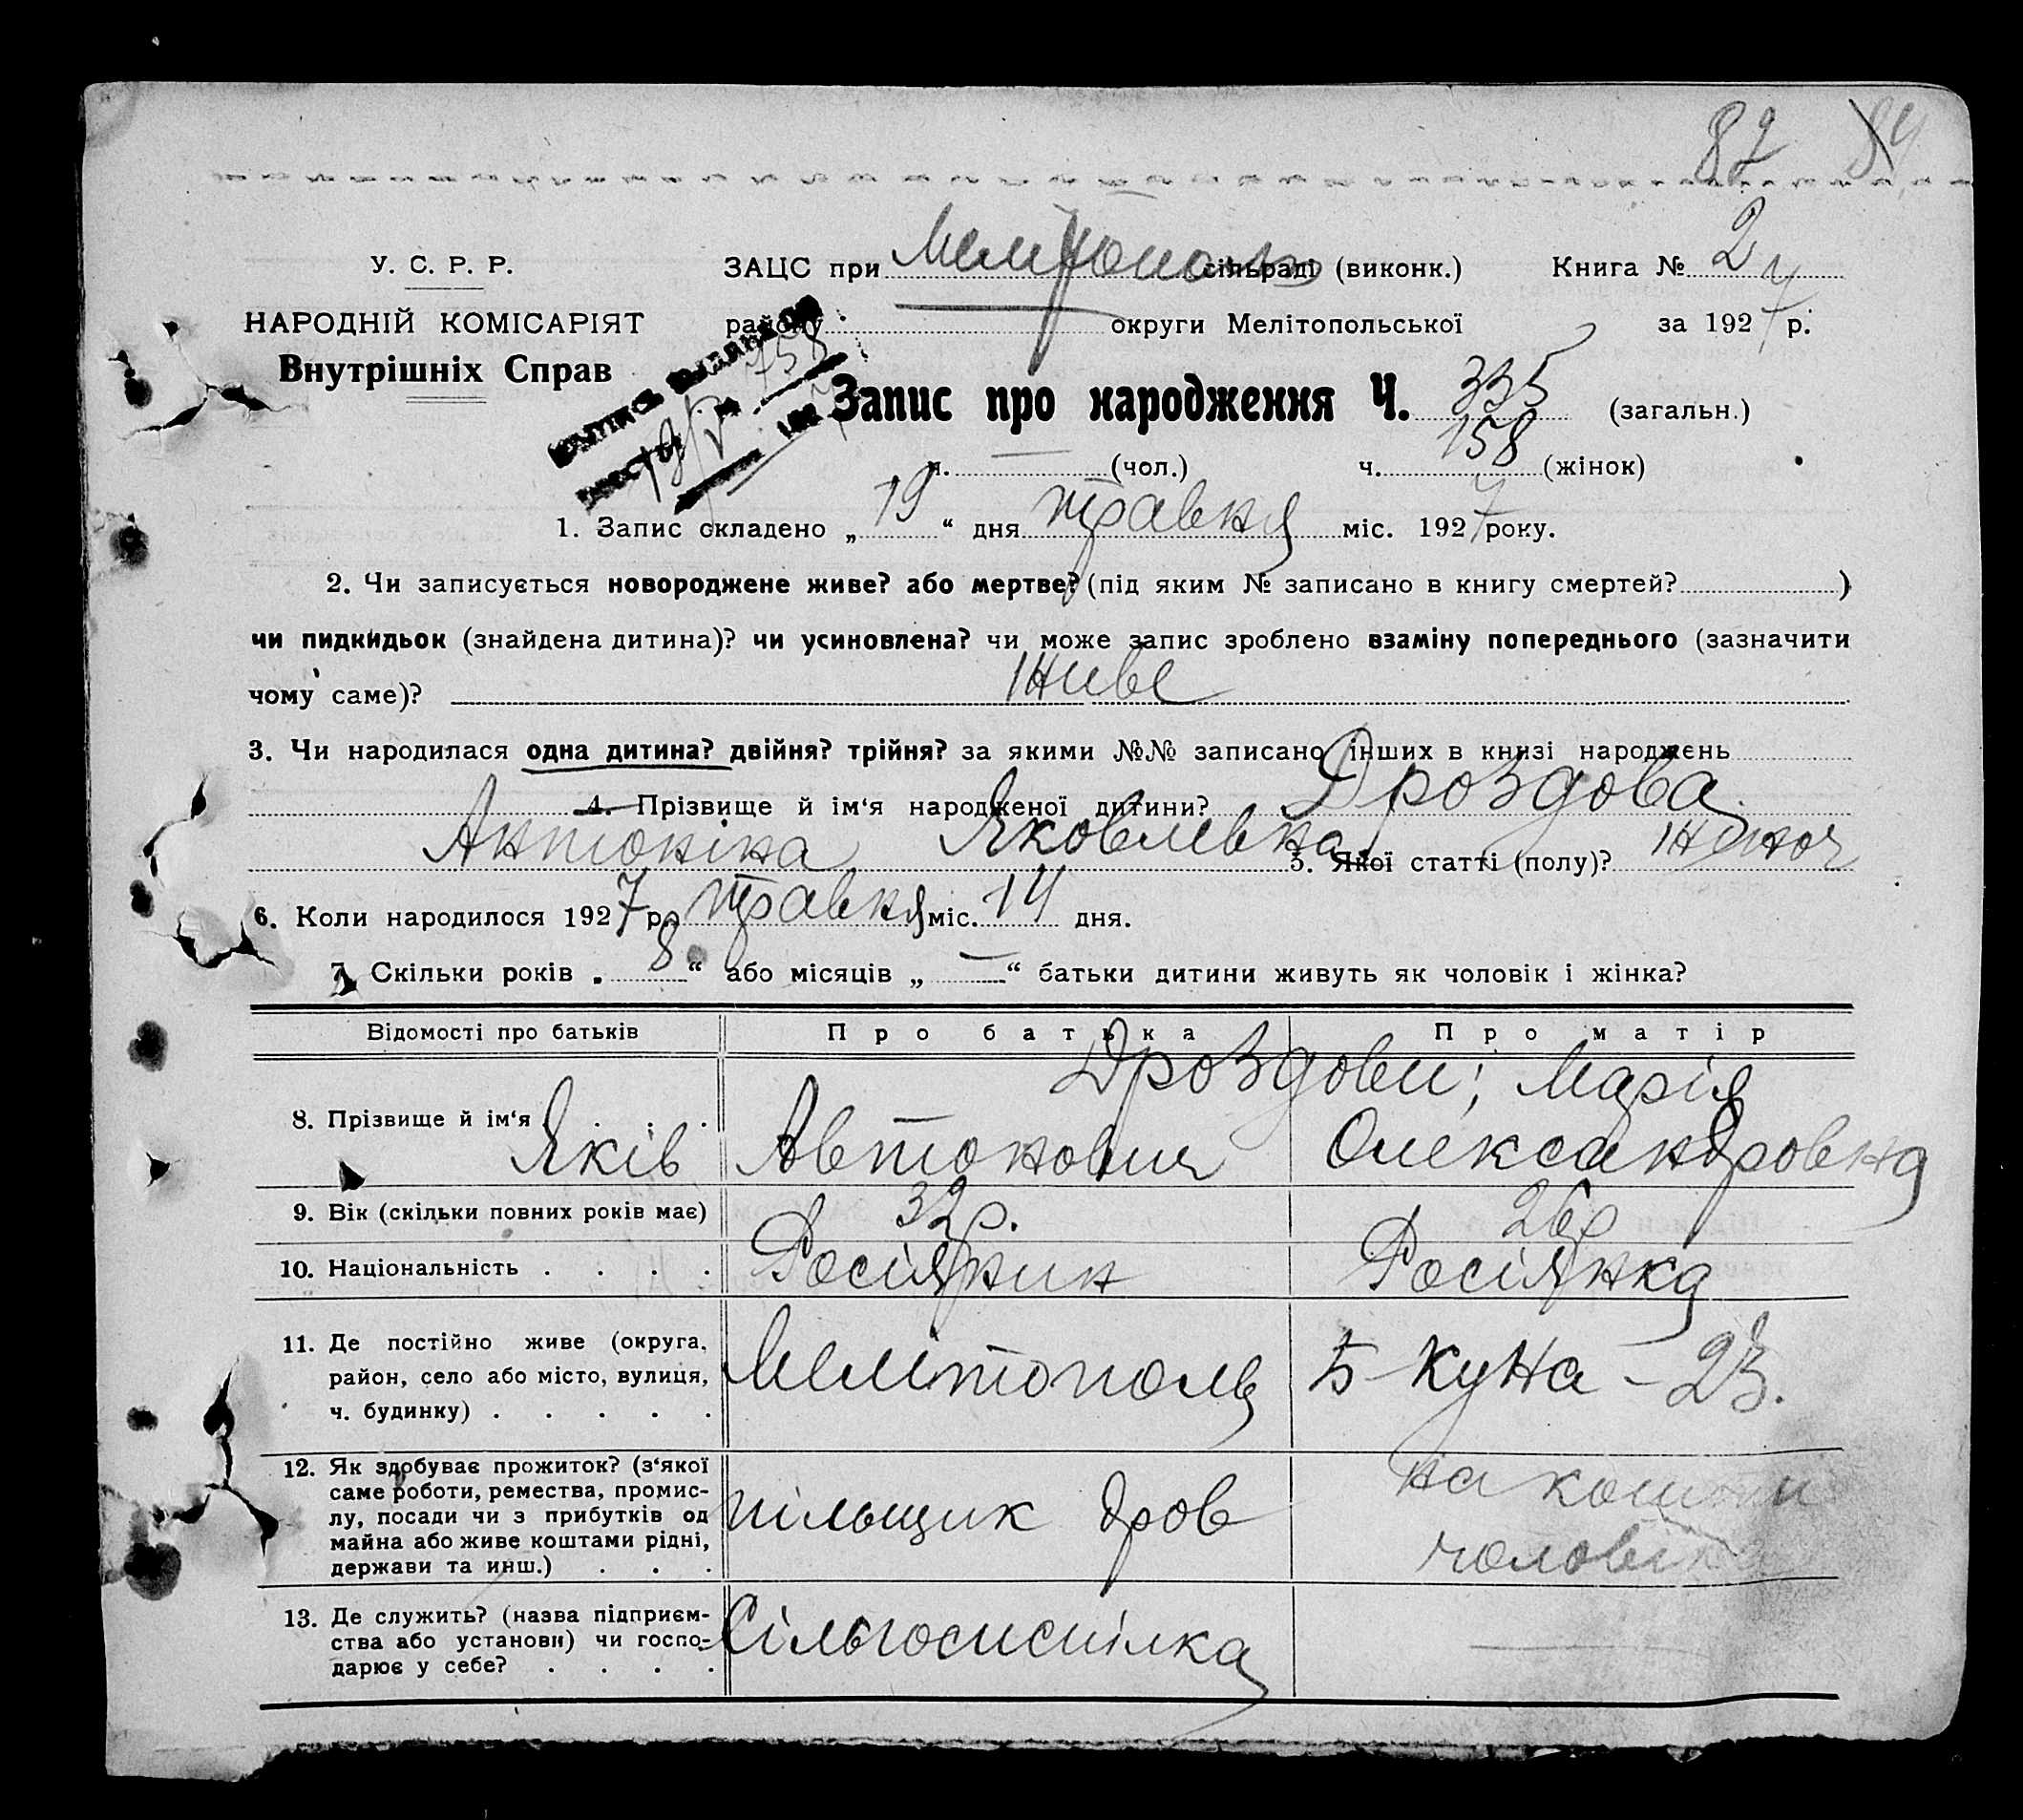 82 84
У. С. Р. Р.
ЗАЦС при Мелітополь сільраді (виконк.) Книга № 2
НАРОДНІЙ КОМІСАРІЯТ
Внутрішніх Справ
району округи Мелітопольської за 1927 р.
158
19/V
Запис про народження Ч. 335 (загальн.)
ч. — (чол.) ч. 158 (жінок)
1. Запис складено „19“ дня травня міс. 1927 року.
2. Чи записується новороджене живе? або мертве? (під яким № записано в книгу смертей? )
чи пидкидьок (знайдена дитина)? чи усиновлена? чи може запис зроблено взаміну попереднього (зазначити
чому саме)? живе
3. Чи народилася одна дитина? двійня? трійня? за якими №№ записано інших в книзі народжень
4. Прізвище й ім‘я народженої дитини? Дроздова
Антоніна Яковлевна 5. Якої статті (полу)? жіноч
6. Коли народилося 1927 р. травня міс. 14 дня.
7. Скільки років „8“ або місяців „—“ батьки дитини живуть як чоловік і жінка?
Відомості про батьків Про батька Про матір
Дроздови; Марія
8. Прізвище й ім‘я . . .
Яків Автонович Олександровна
9. Вік (скільки повних років має) 32 р. 26 р
10. Національність . . . . Росіянин Росіянка
11. Де постійно живе (округа,
район, село або місто, вулиця,
ч. будинку) . . . . .
Мелітополь 5 Куна – 23.
12. Як здобуває прожиток? (з‘якої
саме роботи, ремества, промис-
лу, посади чи з прибутків од
майна або живе коштами рідні,
держави та инш.) . . .
пільщик дров
на кошти
чоловіка
13. Де служить? (назва підприєм-
ства або установи) чи госпо-
дарює у себе? . . . .
Сільгоспспілка —